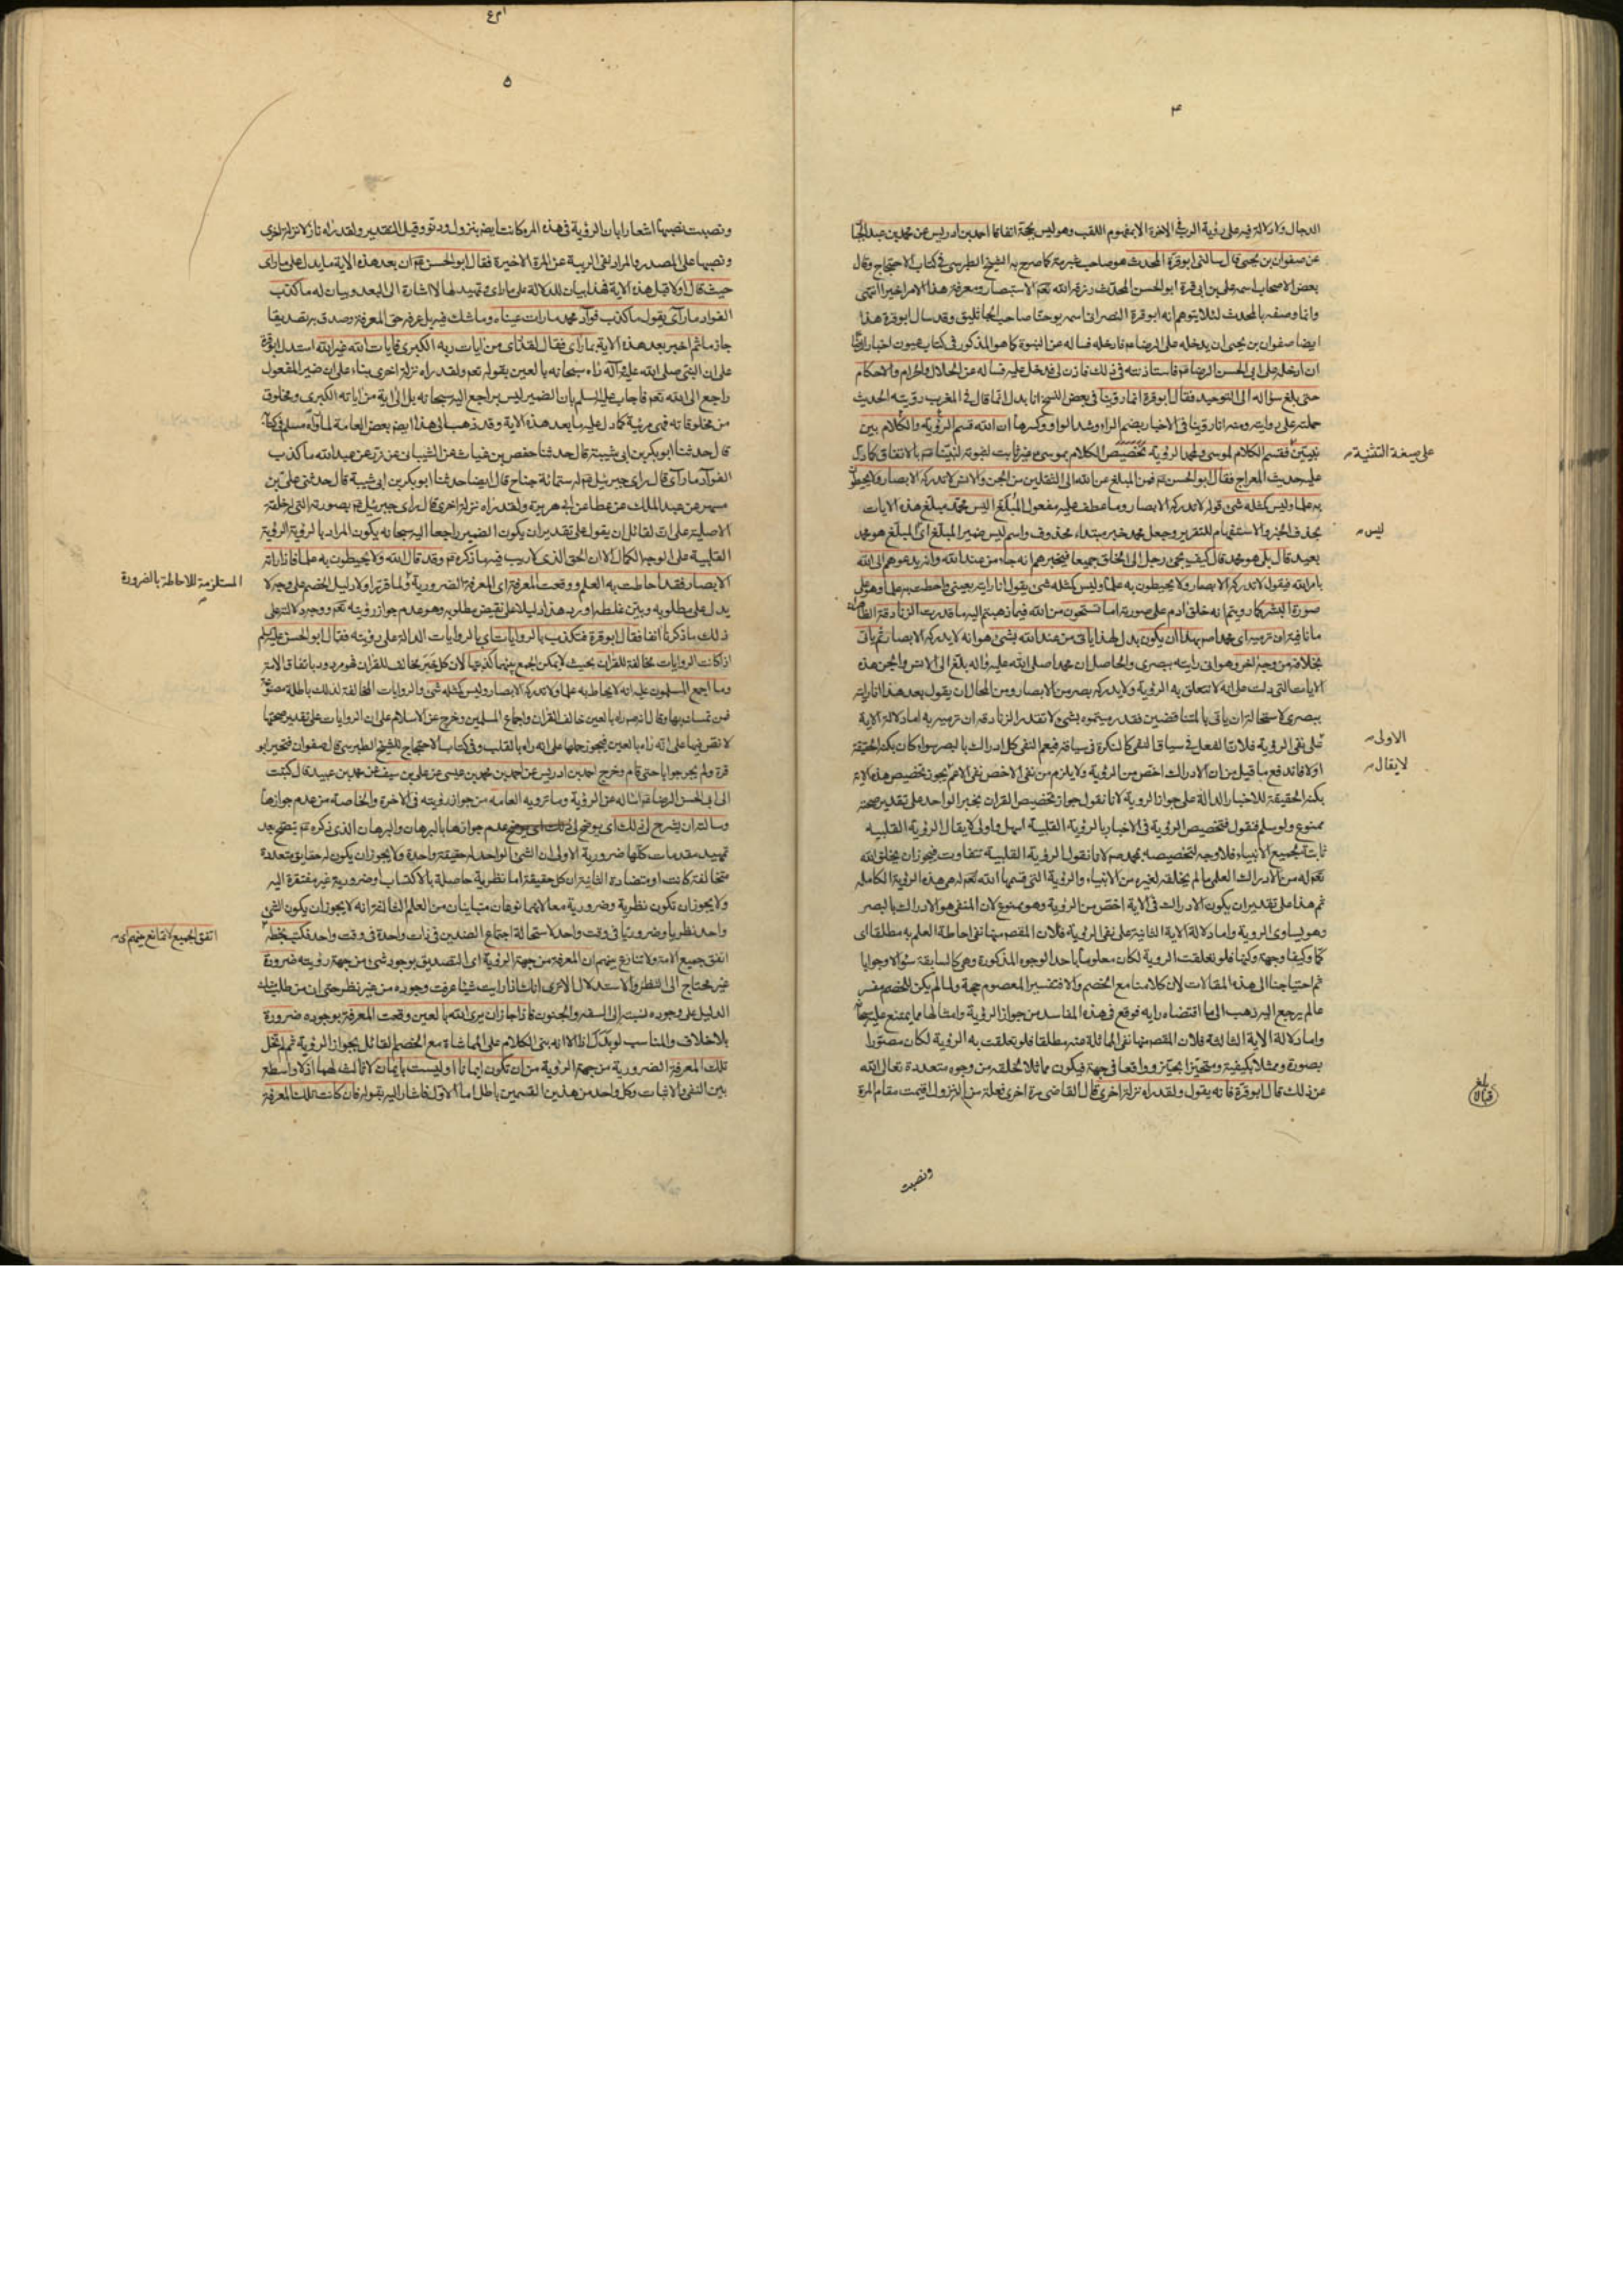 ۴
الدجال ولا دلالة فيه على رؤية الرب في الاخرة الا بمفهوم اللقب وهو ليس بحجة اتفاقا احمد بن ادريس عن محمد بن عبد الجبار
عن صفوان بن يحيى قال سالنى ابو قرة المحدث هو صاحب شبرمة كما صرح به الشيخ الطبرسى فى كتاب الاحتجاج وقال
بعض الاصحاب اسمه على بن ابى قرة ابو الحسن المحدث رزقه الله تعم الاستبصار ومعرفة هذا الامر اخيرا انتهى
وانما وصفه بالمحدث لئلا يتوهم انه ابو قرة النصرانى اسمه يوحنا صاحب الجاثليق وقد سال ابو قرة هذا
ايضا صفوان بن يحيى ان يدخله على الرضا ع م فادخله فساله عن النبوة كما هو المذكور فى كتاب عيون اخبار الرضا
ان ادخله على ابى الحسن الرضا ع م فاستاذنته فى ذلك فاذن لى فدخل عليه فساله عن الحلال والحرام والاحكام
حتى بلغ سؤاله الى التوحيد فقال ابو قرة انا روينا فى بعض النسخ انا بدل انما قال فى المغرب رويته الحديث
حملته على روايته ومنه انا روينا فى الاخبار بضم الراء وشد الواو وكسرها ان الله قسم الرؤية والكلام بين
نبيين فقسم الكلام لموسى ولمحمد الرؤية تخصيص الكلام بموسى ع م غير ثابت لثبوته لنبينا ع م بالاتفاق كما دل
على صيغة التثنية
عليه حديث المعراج فقال ابو الحسن ع م فمن المبلغ عن الله الى الثقلين من الجن والانس لا تدركه الابصار ولا يحيطون
به علما وليس كمثله شئ قوله لا تدركه الابصار وما عطف عليه مفعول المبلغ اليس محمد مبلغ هذه الايات
بحذف الخبر والاستفهام للتقرير وجعل محمد خبر مبتداء محذوف واسم ليس ضمير المبلغ اى المبلغ هو محمد
ليس
بعيد قال بلى هو محمد قال كيف يجئ رجل الى الخلق جميعا فيخبرهم انه جاء من عند الله وانه يدعوهم الى الله
بامر الله فيقول لا تدركه الابصار ولا يحيطون به علما وليس كمثله شئ يقول انا رايته بعينى واحطت به علما وهو على
صورة البشر كما رويتم انه خلق ادم على صورته اما تستحون من الله فيما ذهبتم اليه ما قدرت الزنادقة
ما نافية ان ترميه اى محمدا ص بهذا ان يكون بدل لهذا ياتى من عند الله بشئ هو انه لا يدركه الابصار ثم ياتى
بخلافه من وجه اخر وهو انى رايته ببصرى والحاصل ان محمدا صلى الله عليه واله بلغ الى الانس والجن هذه
الايات التى دلت على انه لا تتعلق به الرؤية ولا يدركه بصر من الابصار ومن المحال ان يقول بعد هذا انا رايته
ببصرى لاستحالة ان ياتى بالمتناقضين فقد رميتموه بشئ لا تقدر الزنادقة ان ترميه به اما دلالة الاية
على نفى الرؤية فلان الفعل فى سياق النفى كالنكرة فى سياقه فيعم النفى كل ادراك بالبصر سواء كان بكنه الحقيقة
الاولى
او لا فاندفع ما قيل من ان الادراك اخص من الرؤية ولا يلزم من نفى الاخص نفى الاعم يجوز تخصيص هذه الاية
لا يقال
بكنه الحقيقة للاخبار الدالة على جواز الروية لانا نقول جواز تخصيص القران بخبر الواحد على تقدير صحته
ممنوع ولو سلم فنقول فتخصيص الرؤية فى الاخبار بالرؤية القلبية اسهل واولى لا يقال الرؤية القلبيه
ثابتة لجميع الانبياء فلا وجه لتخصيصه بمحمد ص لانا نقول الرؤية القلبية تتفاوت فيجوز ان يخلق الله
تعم له من الادراك العلمى ما لم يخلقه لغيره من الانبياء والرؤية التى قسمها الله تعم له هى هذه الرؤية الكامله
ثم هذا على تقدير ان يكون الادراك فى الاية اخص من الروية وهو ممنوع لان المنفى هو الادراك بالبصر
وهو يساوى الروية واما دلالة الاية الثانية على نفى الرؤية فلان المقصود منها نفى احاطة العلم به مطلقا اى
كما وكيفا وجهة وكنها فلو تعلقت الروية لكان معلوما باحد الوجوه المذكورة وهى كالسابقة سؤالا وجوابا
ثم احتياجنا الى هذه المقالات لان كلامنا مع الخصم والا فتفسير المعصوم حجة ولما لم يكن للخصم مفسر
عالم يرجع اليه ذهب الى ما اقتضاه رايه فوقع فى هذه المفاسد من جواز الرؤية وامثالها مما يمتنع عليه سبحانه
واما دلالة الاية الثالثة فلان المقصود منها نفى المماثلة عنه مطلقا فلو تعلقت به الرؤية لكان مصورا
بصورة وممثلا بكيفية ومتحيزا بحيز وواقعا فى جهة فيكون مماثلا لخلقه من وجوه متعددة تعالى الله
عن ذلك قال ابو قرة فانه يقول ولقد راه نزلة اخرى قال القاضى مرة اخرى فعلة من النزول اقيمت مقام المرة
بلغ قبالا
ونصبت
۵
ونصبت نصبها اشعارا بان الرؤية فى هذه المرة كانت ايضم بنزول ودنو وقيل التقدير ولقد راه نازلا نزلة اخرى
ونصبها على المصدر والمراد نفى الريبة عن المرة الاخيرة فقال ابو الحسن ع م ان بعد هذه الاية ما يدل على ما راى
حيث قال اولا قبل هذه الاية فهذا بيان للدلالة على ما راى وتمهيد لها لا اشارة الى البعد وبيان له ما كذب
الفؤاد ما راى يقول ما كذب فؤاد محمد ما رات عيناه وما شك فيه بل عرفه حق المعرفة وصدق به تصديقا
جازما ثم اخبر بعد هذه الاية بما راى فقال لقد راى من ايات ربه الكبرى فايات الله غير الله استدل ابو قرة
على ان النبى صلى الله عليه واله راه سبحانه بالعين بقوله تعم ولقد راه نزلة اخرى بناء على ان ضمير المفعول
راجع الى الله تعم فاجاب عليه السلم بان الضمير ليس براجع اليه سبحانه بل الى اية من اياته الكبرى ومخلوق
من مخلوقاته فهى مرئية كما دل عليه ما بعد هذه الاية وقد ذهب الى هذا ايضم بعض العامة لما رواه مسلم فى كتابه
قال حدثنا ابو بكر بن ابى شيبة قال حدثنا حفص بن غياث عن الشيبانى عن زر عن عبد الله ما كذب
الفؤاد ما راى قال راى جبرئيل ع م له ستمائة جناح قال ايضا حدثنا ابو بكر بن ابى شيبة قال حدثنى على بن
مسهر عن عبد الملك عن عطا عن ابى هريرة ولقد راه نزلة اخرى قال راى جبرئيل ع م بصورته التى له خلقته
الاصلية على ان لقائل ان يقول على تقدير ان يكون الضمير راجعا اليه سبحانه يكون المراد بالرؤية الرؤية
القلبية على الوجه الكمال الا ان الحق الذى لا ريب فيه ما ذكره ع م وقد قال الله ولا يحيطون به علما فاذا راته
الابصار فقد احاطت به العلم ووقعت المعرفة اى المعرفة الضرورية ولما قرر اولا دليل الخصم على وجه لا
المستلزمة للاحاطة بالضرورة
يدل على مطلوبه وبين غلطه اورد هذا دليلا على نقيض مطلوبه وهو عدم جواز رؤيته تعم ووجه دلالته على
ذلك ما ذكرنا انفا فقال ابو قرة فتكذب بالروايات اى بالروايات الدالة على رؤيته فقال ابو الحسن عليه السلم
اذا كانت الروايات مخالفة للقران بحيث لا يمكن الجمع بينهما كذبتها لان كل خبر مخالف للقران فهو مردود باتفاق الامة
وما اجمع المسلمون عليه انه لا يحاط به علما ولا تدركه الابصار وليس كمثله شئ والروايات المخالفة لذلك باطلة
فمن تمسك بها وقال انه راه بالعين خالف القران واجماع المسلمين وخرج عن الاسلام على ان الروايات على تقدير صحتها
لا نص فيها على انه راه بالعين فيجوز حملها على انه راه بالقلب وفى كتاب الاحتجاج للشيخ الطبرسى قال صفوان فتحير ابو
قرة ولم يحر جوابا حتى قام وخرج احمد بن ادريس عن احمد بن محمد بن عيسى عن على بن سيف عن محمد بن عبيد قال كتبت
الى ابى الحسن الرضا ع م اساله عن الرؤية وما ترويه العامه من جواز رؤيته فى الاخرة والخاصة من عدم جوازها
وسالته ان يشرح لى ذلك اى يوضح لى عدم جوازها بالبرهان والبرهان الذى ذكره ع م يتضح بعد
تمهيد مقدمات كلها ضرورية الاولى ان الشئ الواحد له حقيقة واحدة ولا يجوز ان يكون له حقايق متعددة
متخالفة كانت او متضادة الثانية ان كل حقيقة اما نظرية حاصلة بالاكتساب او ضرورية غير مفتقرة اليه
ولا يجوز ان تكون نظرية وضرورية معا لانهما نوعان متباينان من العلم الثالثة انه لا يجوز ان يكون الشئ
واحد نظريا وضروريا فى وقت واحد لاستحالة اجتماع الضدين فى ذات واحدة فى وقت واحد فكتب بخطه
اتفق الجميع لا تمانع بينهم اى
اتفق جميع الامة ولا تنازع بينهم ان المعرفة من جهة الرؤية اى التصديق بوجود شئ من جهة رؤيته ضرورة
غير محتاج الى النظر والاستدلال الا ترى انك اذا رايت شيئا عرفت وجوده من غير نظر حتى ان من طلب منك
الدليل على وجوده نسبته الى السفه والجنون فاذا جاز ان يرى الله بالعين وقعت المعرفة بوجوده ضرورة
بلا خلاف والمناسب لو بدل اذا الا انه بنى الكلام على المماشاة مع الخصم القائل بجواز الرؤية ثم لم تخل
تلك المعرفة الضرورية من جهة الرؤية من ان تكون ايمانا او ليست بايمان لا ثالث لهما اذ لا واسطة
بين النفى والاثبات وكل واحد من هذين القسمين باطل اما الاول فاشار اليه بقوله فان كانت تلك المعرفة